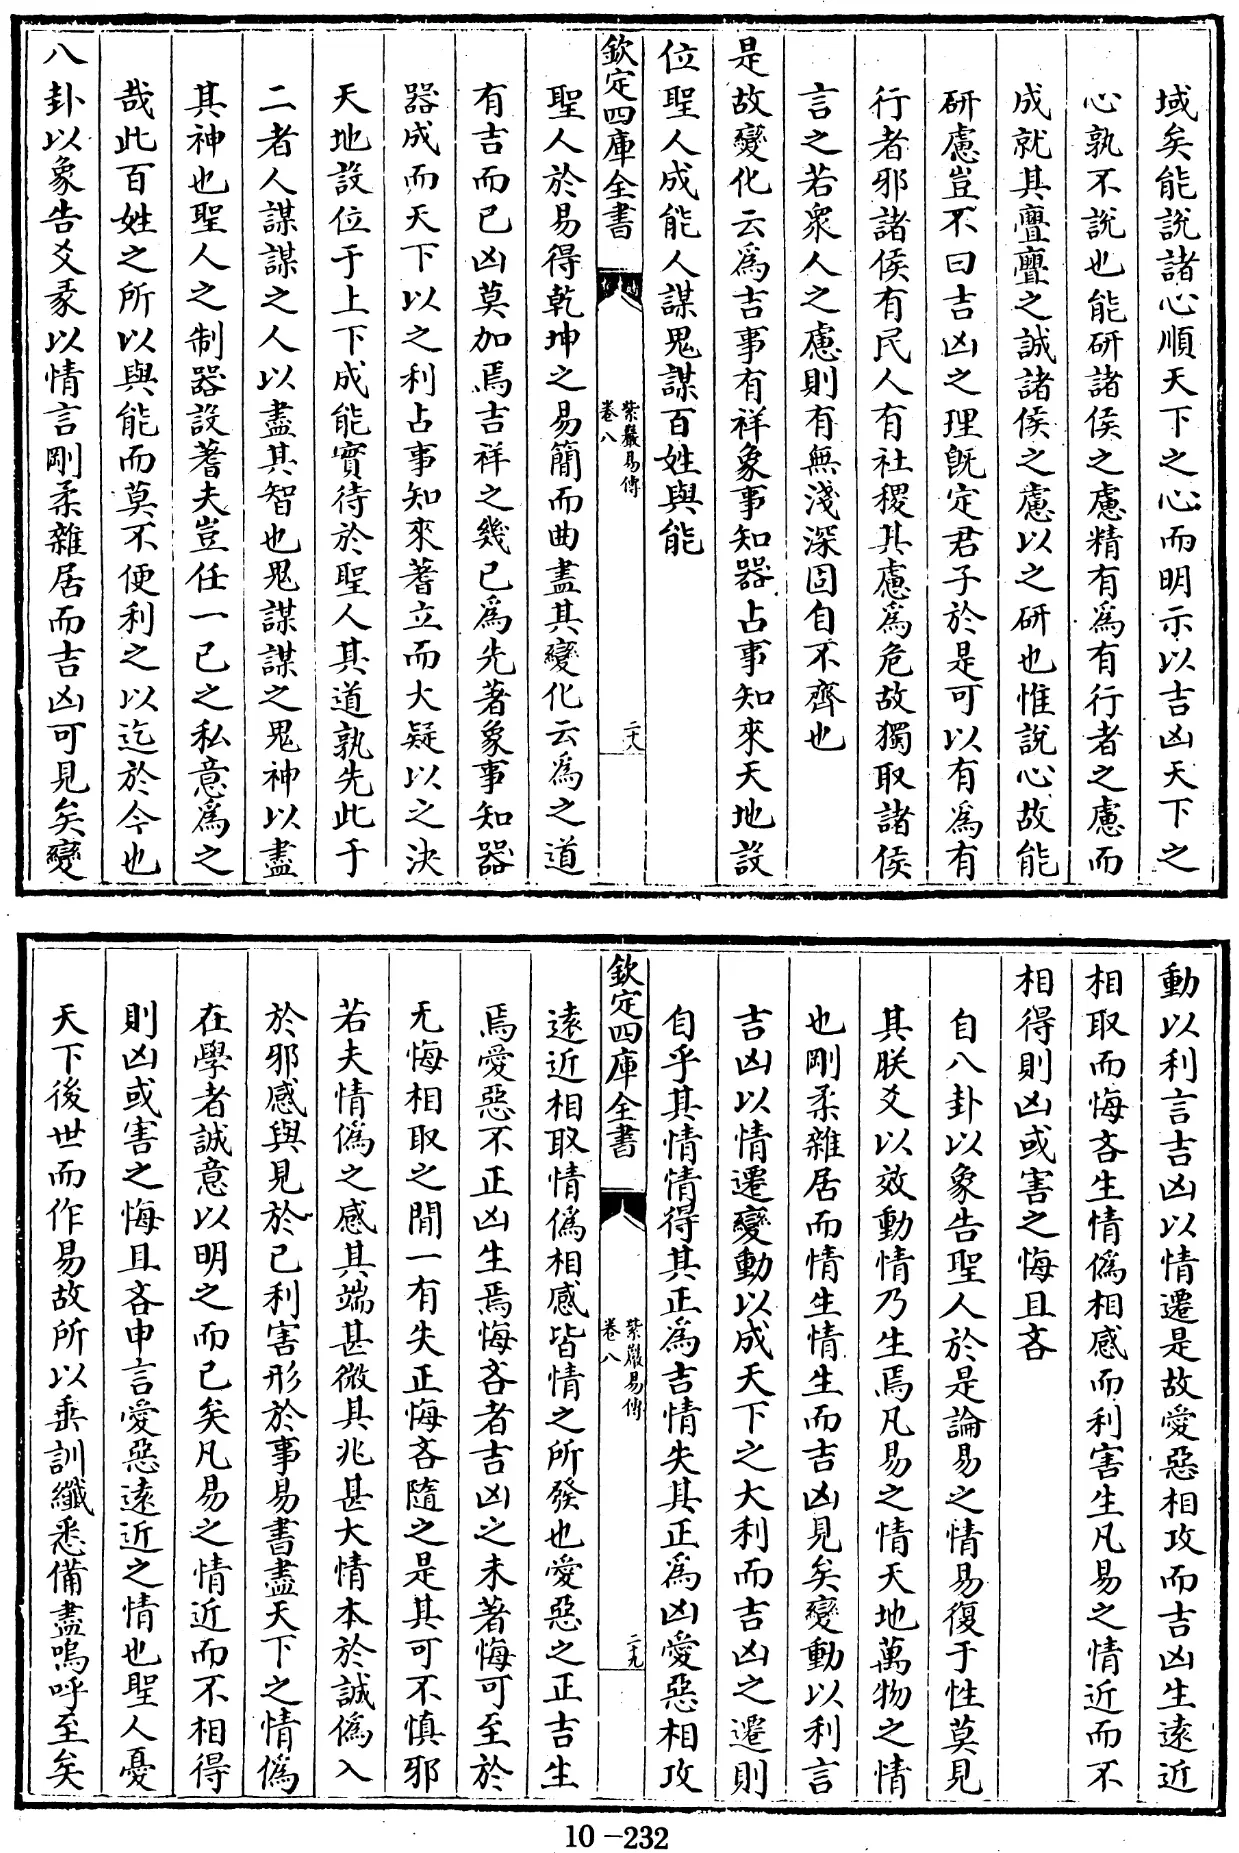 域矣能說諸心順天下之心而明示以吉凶天下之
心孰不說也能研諸侯之慮精有為有行者之慮而
成就其亹亹之誠諸侯之慮以之研也惟說心故能
研慮豈不曰吉凶之理既定君子於是可以有為有
行者邪諸侯有民人有社稷其慮為危故獨取諸侯
言之若衆人之慮則有無淺深固自不齊也
是故變化云為吉事有祥象事知器占事知來天地設
位聖人成能人謀鬼謀百姓與能
欽定四庫全書
紫巖易傳
卷八
二十八
聖人於易得乾坤之易簡而曲盡其變化云為之道
有吉而已凶莫加焉吉祥之幾已為先著象事知器
器成而天下以之利占事知來蓍立而大疑以之決
天地設位于上下成能實待於聖人其道孰先此于
二者人謀謀之人以盡其智也鬼謀謀之鬼神以盡
其神也聖人之制器設蓍夫豈任一己之私意為之
哉此百姓之所以與能而莫不便利之以迄於今也
八卦以象告爻彖以情言剛柔雜居而吉凶可見矣變
動以利言吉凶以情遷是故愛惡相攻而吉凶生遠近
相取而悔吝生情偽相感而利害生凡易之情近而不
相得則凶或害之悔且吝
自八卦以象告聖人於是論易之情易復于性莫見
其朕爻以效動情乃生焉凡易之情天地萬物之情
也剛柔雜居而情生情生而吉凶見矣變動以利言
吉凶以情遷變動以成天下之大利而吉凶之遷則
自乎其情情得其正為吉情失其正為凶愛惡相攻
欽定四庫全書
紫巖易傳
卷八
二十九
遠近相取情偽相感皆情之所發也愛惡之正吉生
焉愛惡不正凶生焉悔吝者吉凶之未著悔可至於
无悔相取之間一有失正悔吝隨之是其可不慎邪
若夫情偽之感其端甚微其兆甚大情本於誠偽入
於邪感與見於己利害形於事易書盡天下之情偽
在學者誠意以明之而已矣凡易之情近而不相得
則凶或害之悔且吝申言愛惡遠近之情也聖人憂
天下後世而作易故所以垂訓纖悉備盡嗚呼至矣
10-232